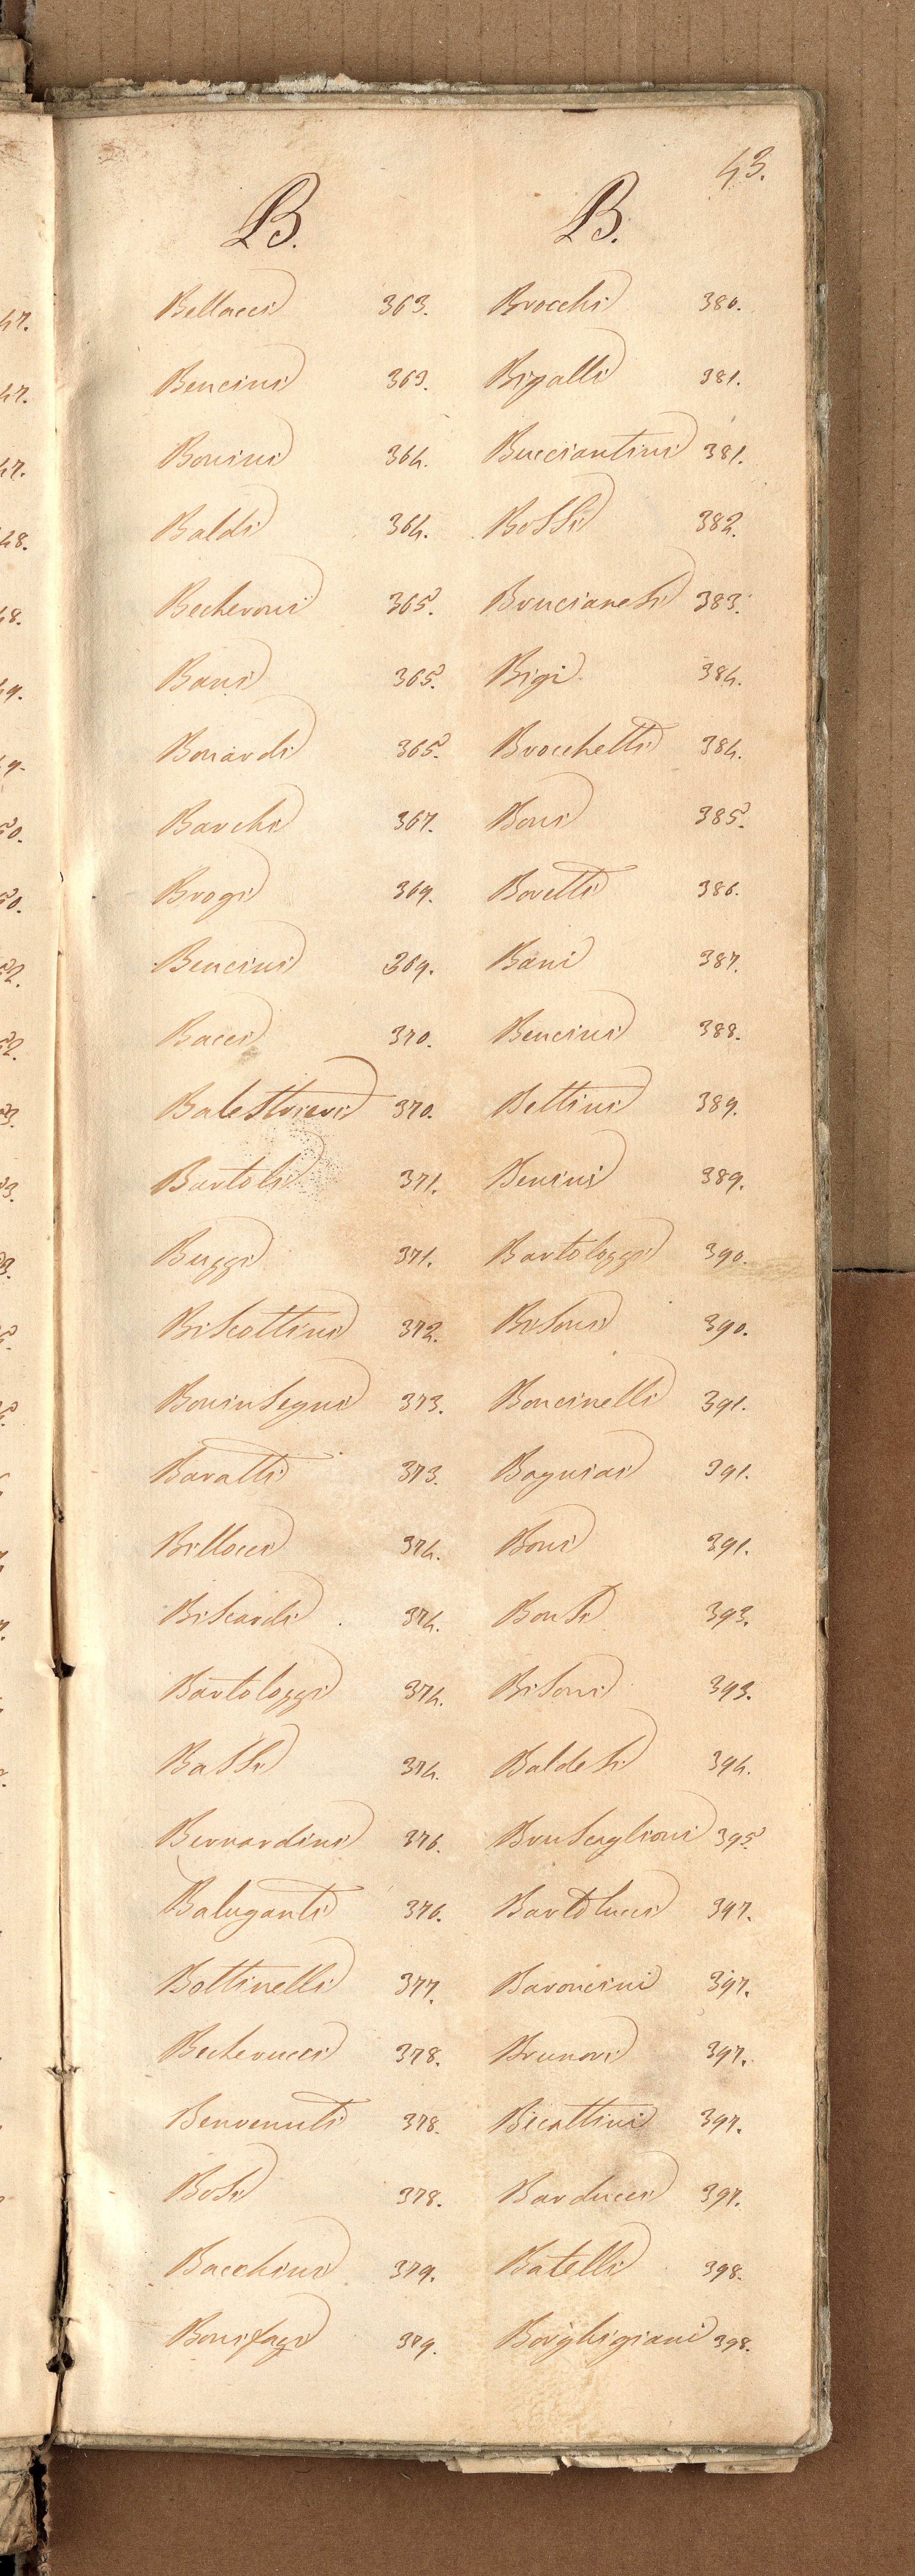 43.
B.
Bellacci 363.
Bencini 363.
Bonini 364.
Baldi 364.
Becheroni 365.
Bani 365.
Bonardi 365.
Barchi 367.
Brogi 369.
Bencini 369.
Bacci 370.
Balestrieri 370.
Bartoli 371.
Buggi 371.
Biscottini 372.
Boninsegni 373.
Baratti 373.
Billocci 374.
Biscardi 374.
Bartolozzi 374.
Bassi 374.
Bernardini 376.
Baluganti 376.
Bottinelli 377.
Becherucci 378.
Benvenuti 378.
Bosi 378.
Bacchini 379.
Bonifazi 379.
B.
Brocchi 380.
Bigalli 381.
Bucciantini 381.
Bossi 382.
Brucianesi 383.
Bigi 384.
Brocchetti 384.
Boni 385.
Boretti 386.
Bani 387.
Bencini 388.
Bettini 389.
Benini 389.
Bartolozzi 390.
Bisoni 390.
Boncinelli 391.
Bagniai 391.
Boni 391.
Bonsi 393.
Bisoni 393.
Baldesi 394.
Bruscaglioni 395.
Bartolucci 397.
Baroncini 397.
Brunori 397.
Bicattini 397.
Barducci 397.
Batelli 398.
Borghigiani 398.
47.
47.
47.
48.
48.
49.
49.
50.
50.
52.
52.